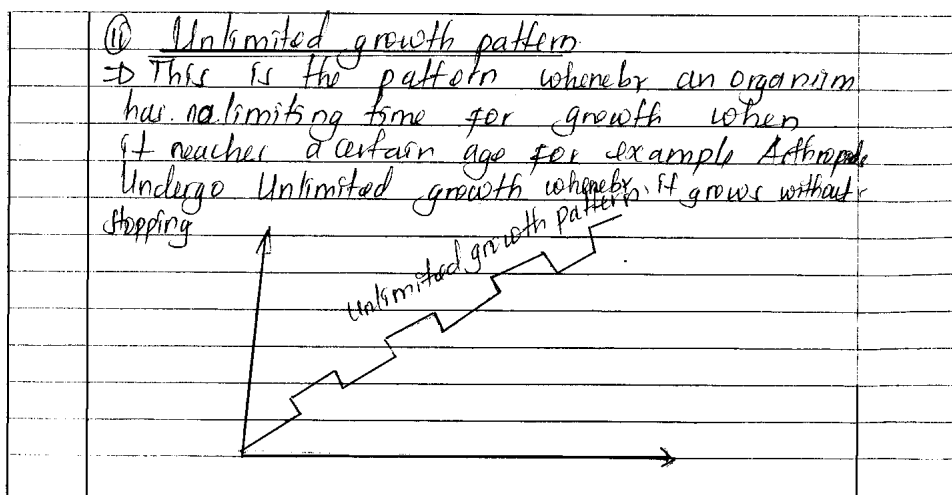 (ii) Unlimited growth pattern
⇒ This is the pattern whereby an organism
has no limiting time for growth when
it reaches a certain age for example Arthropods
Undergo Unlimited growth whereby it grows without
stopping
Unlimited growth pattern